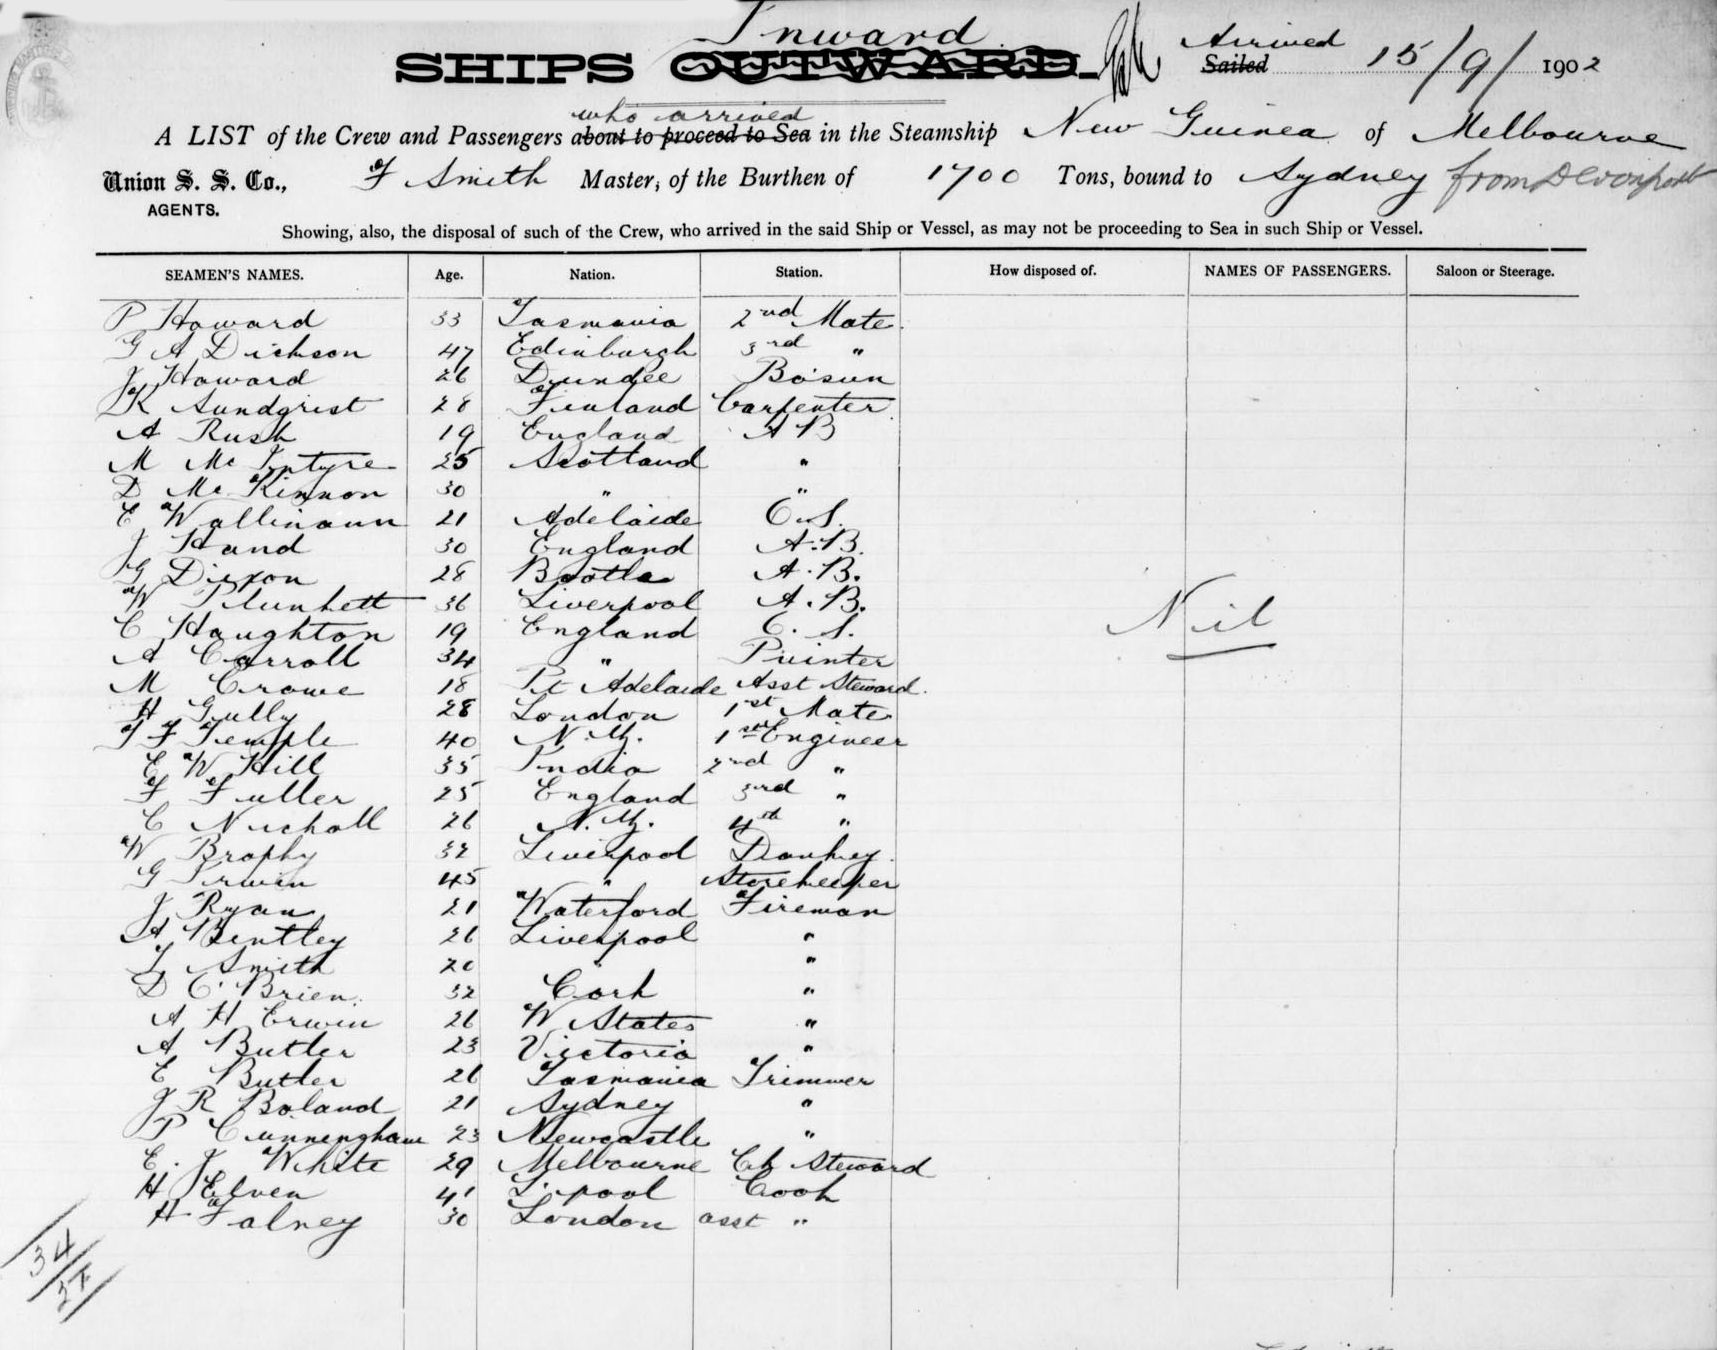 Inward
SHIPS OUTWARD. Arrived Sailed 15/9/ 1902
who arrived
A LIST of the Crew and Passengers about to proceed to Sea in the Steamship New Guinea of Melbourne
Union S. S. Co., F Smith Master, of the Burthen of 1700 Tons, bound to Sydney from Devonport
AGENTS.
Showing, also, the disposal of such of the Crew, who arrived in the said Ship or Vessel, as may not be proceeding to Sea in such Ship or Vessel.
SEAMEN'S NAMES. Age. Nation. Station. How disposed of. NAMES OF PASSENGERS. Saloon or Steerage.
P Howard 33 Tasmania 2nd Mate
G A Dickson 47 Edinburgh 3rd "
J Howard 26 Dundee Bosun
K Sundqrist 28 Finland Carpenter
A Rush 19 England A B
M McIntyre 25 Scotland "
D McKinnon 30 " "
E Wallmann 21 Adelaide O.S.
J Hand 30 England A.B.
G Dixon 28 Bootle A.B.
W Plunkett 36 Liverpool A.B.
C Haughton 19 England O.S.
Nil
A Carroll 34 " Printer
M Crowe 18 Pt Adelaide Asst Steward
H Gully 28 London 1st Mate
T F Temple 40 N.Z. 1st Engineer
E W Hill 35 India 2nd "
F Fuller 25 England 3rd "
C Nicholl 26 N.Z. 4th "
W Brophy 32 Liverpool Donkey
G Irwin 45 " Storekeeper
J Ryan 21 Waterford Fireman
A Bentley 26 Liverpool "
T Smith 20 " "
D O'Brien 32 Cork "
A H Erwin 26 W States "
A Butler 23 Victoria "
E Butler 26 Tasmania Trimmer
J R Boland 21 Sydney "
P Cunningham 23 Newcastle "
E. J. White 29 Melbourne Ch Steward
H Elven 41 L.pool Cook
H Falney 30 London asst "
34